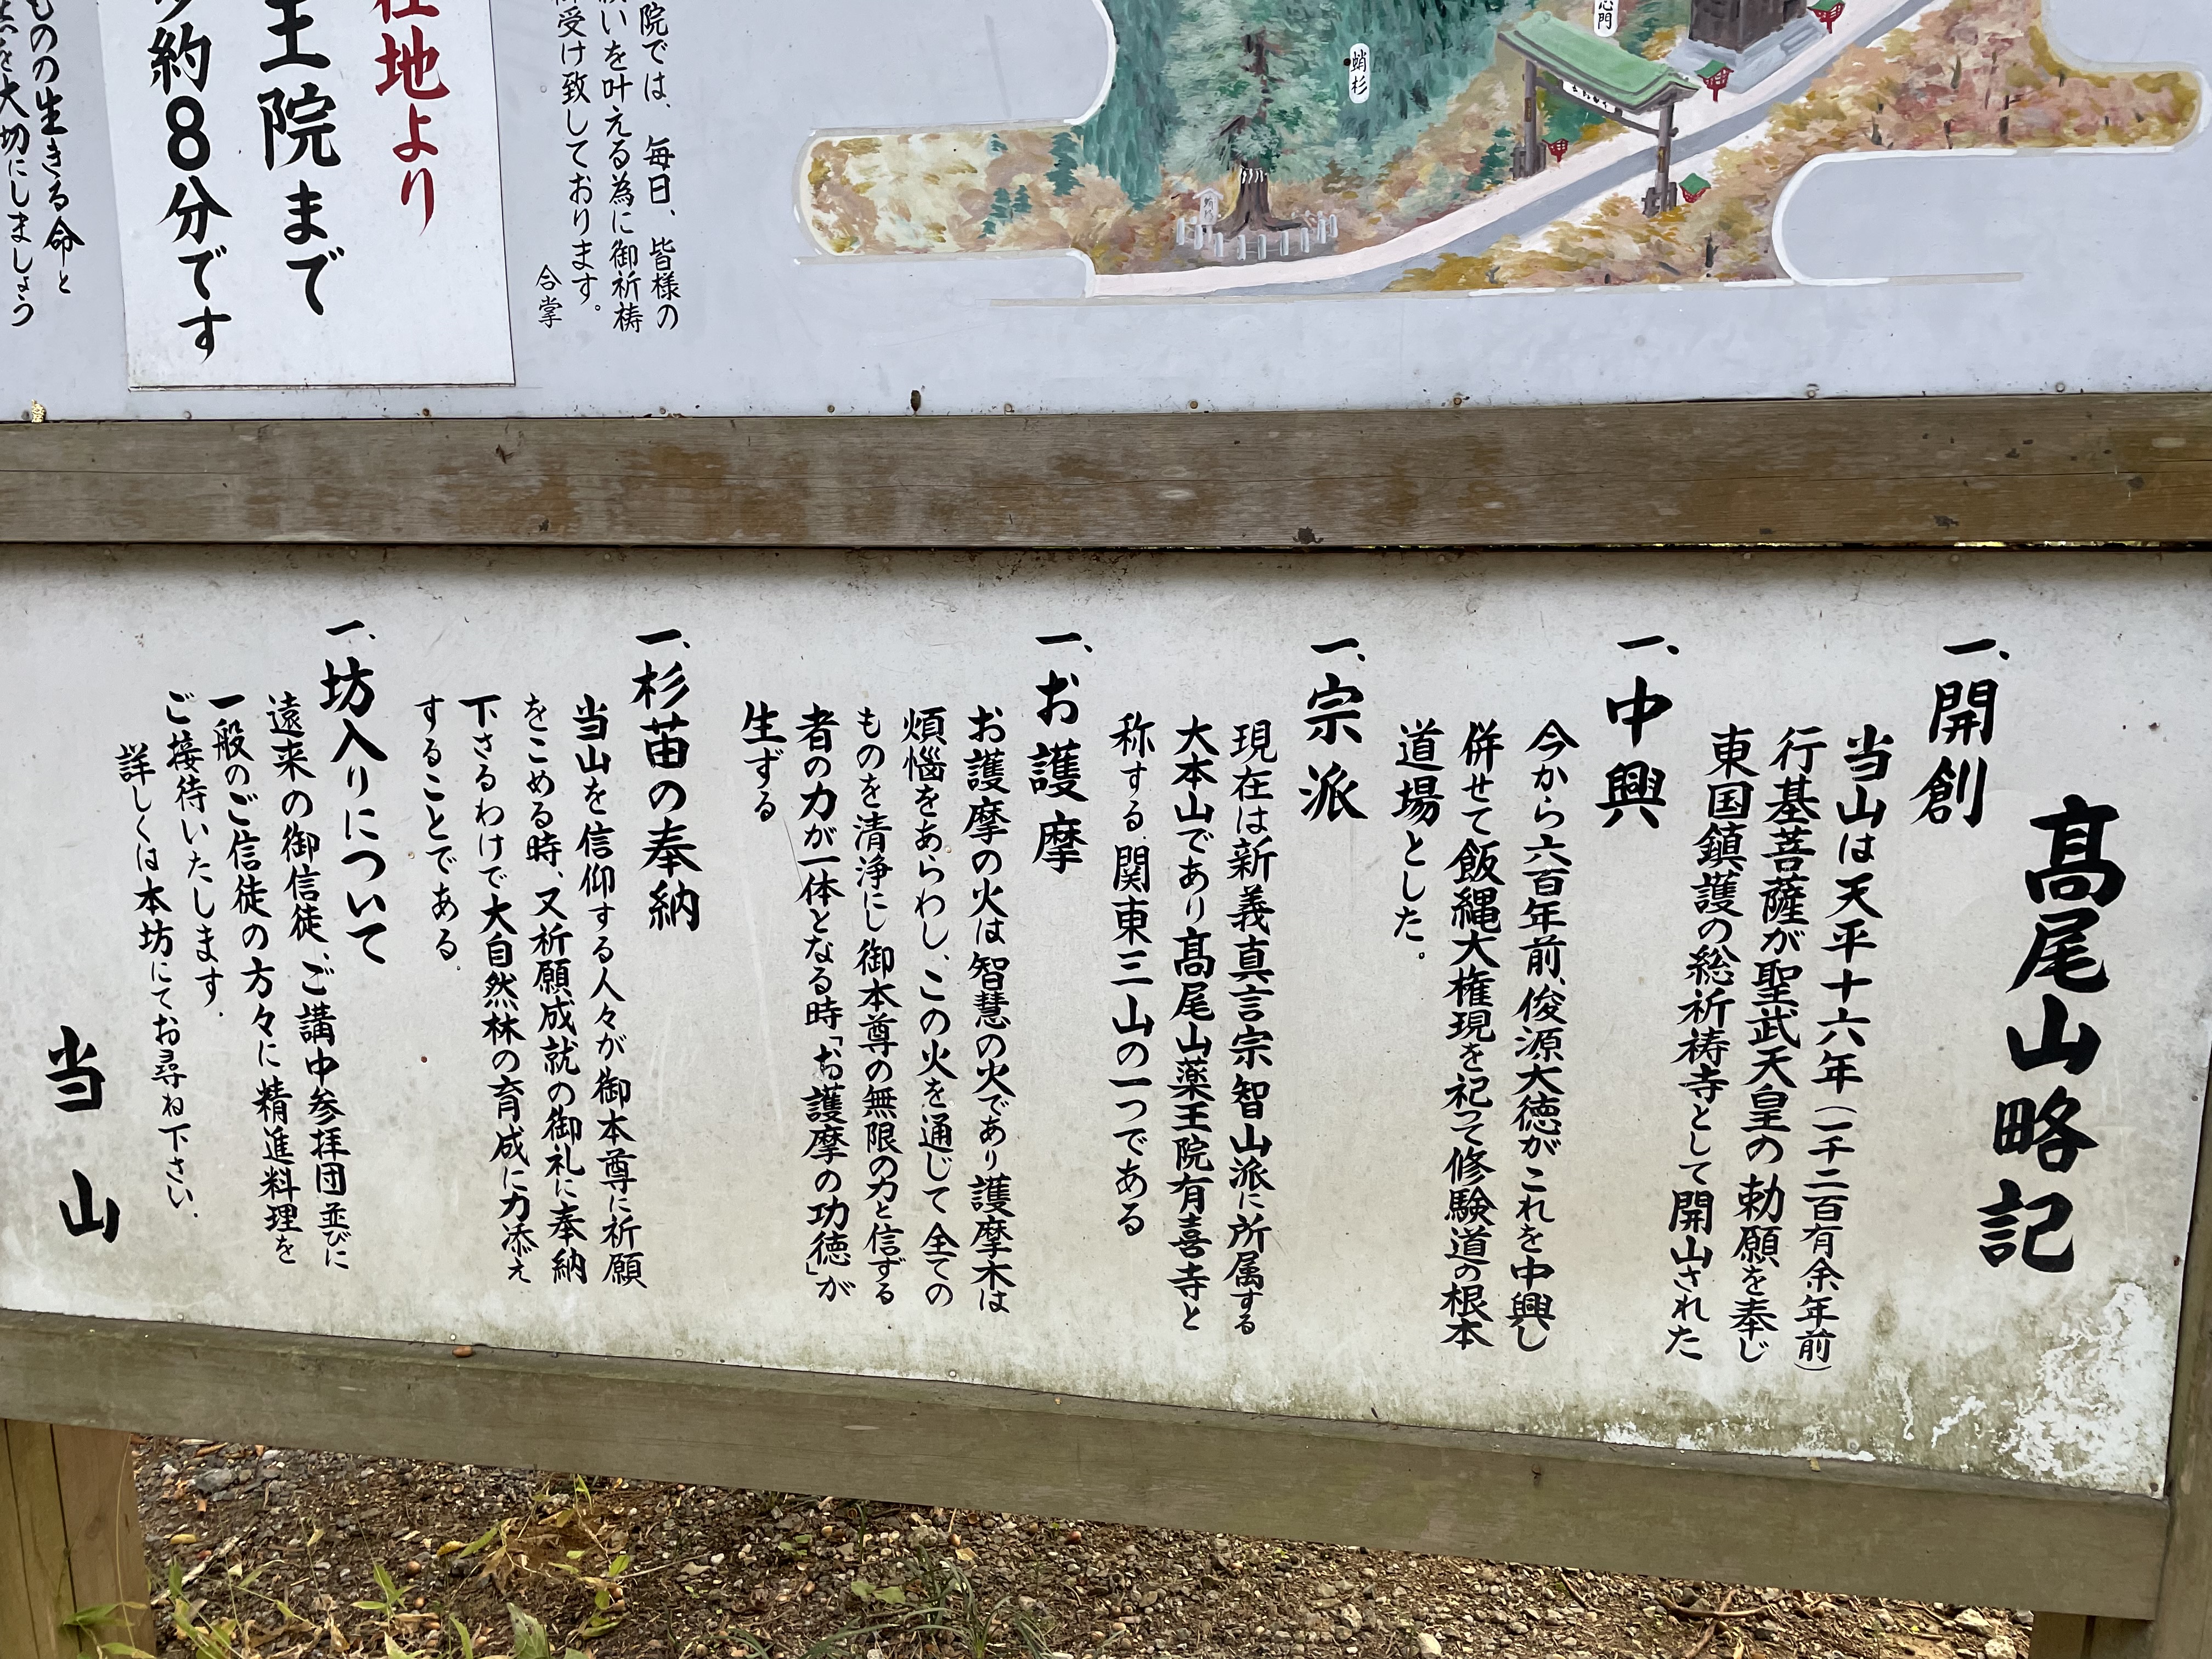 院では、毎日、皆様の
願いを叶える為に御祈祷
御受け致しております。
合掌
在地より
王院まで
約8分です
ものの生きる命と
を大切にしましょう
心門
蛸杉
髙尾山略記
一、開創
当山は天平十六年(一千二百有余年前)
行基菩薩が聖武天皇の勅願を奉じ
東国鎮護の総祈祷寺として開山された
一、中興
今から六百年前、俊源大徳がこれを中興し
併せて飯縄大権現を祀って修験道の根本
道場とした。
一、宗派
現在は新義真言宗智山派に所属する
大本山であり髙尾山薬王院有喜寺と
称する、関東三山の一つである
一、お護摩
お護摩の火は智慧の火であり護摩木は
煩悩をあらわし、この火を通じて全ての
ものを清浄にし御本尊の無限の力と信ずる
者の力が一体となる時「お護摩の功徳」が
生ずる
一、杉苗の奉納
当山を信仰する人々が御本尊に祈願
をこめる時、又祈願成就の御礼に奉納
下さるわけで大自然林の育成に力添え
することである。
一、坊入りについて
遠来の御信徒、ご講中参拝団並びに
一般のご信徒の方々に精進料理を
ご接待いたします。
詳しくは本坊にてお尋ね下さい。
当山